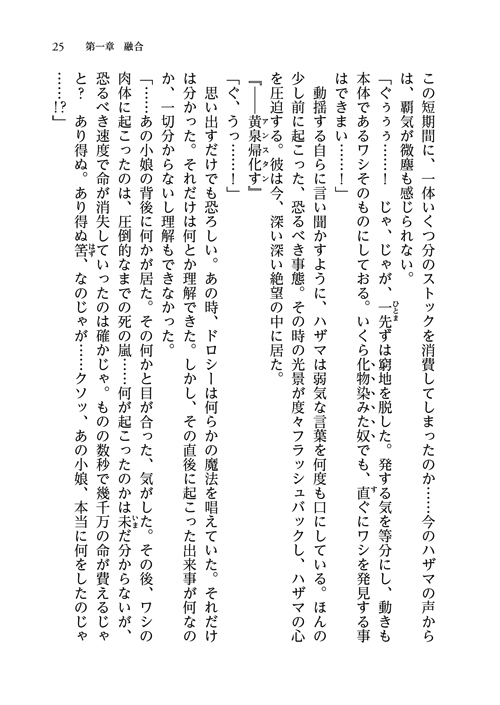 25　第一章　融合
この短期間に、一体いくつ分のストックを消費してしまったのか……今のハザマの声から
は、覇気が微塵も感じられない。
「ぐぅぅぅ……！　じゃ、じゃが、一先ずは窮地を脱した。発する気を等分にし、動きも
本体であるワシそのものにしておる。いくら化物染みた奴でも、直ぐにワシを発見する事
はできまい……！」
　動揺する自らに言い聞かすように、ハザマは弱気な言葉を何度も口にしている。ほんの
少し前に起こった、恐るべき事態。その時の光景が度々フラッシュバックし、ハザマの心
を圧迫する。彼は今、深い深い絶望の中に居た。
『――黄泉帰化す』
「ぐ、うっ……！」
　思い出すだけでも恐ろしい。あの時、ドロシーは何らかの魔法を唱えていた。それだけ
は分かった。それだけは何とか理解できた。しかし、その直後に起こった出来事が何なの
か、一切分からないし理解もできなかった。
「……あの小娘の背後に何かが居た。その何かと目が合った、気がした。その後、ワシの
肉体に起こったのは、圧倒的なまでの死の嵐……何が起こったのかは未だ分からないが、
恐るべき速度で命が消失していったのは確かじゃ。ものの数秒で幾千万の命が費えるじゃ
と？　あり得ぬ。あり得ぬ筈、なのじゃが……クソッ、あの小娘、本当に何をしたのじゃ
……!?」